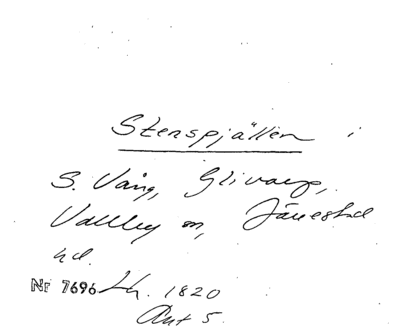 Stenspjällen i
S. Vång, Glivarp,
Vallby sn, Järrestad
hd.
Nr 7696 Lh. 1820
Ant 5